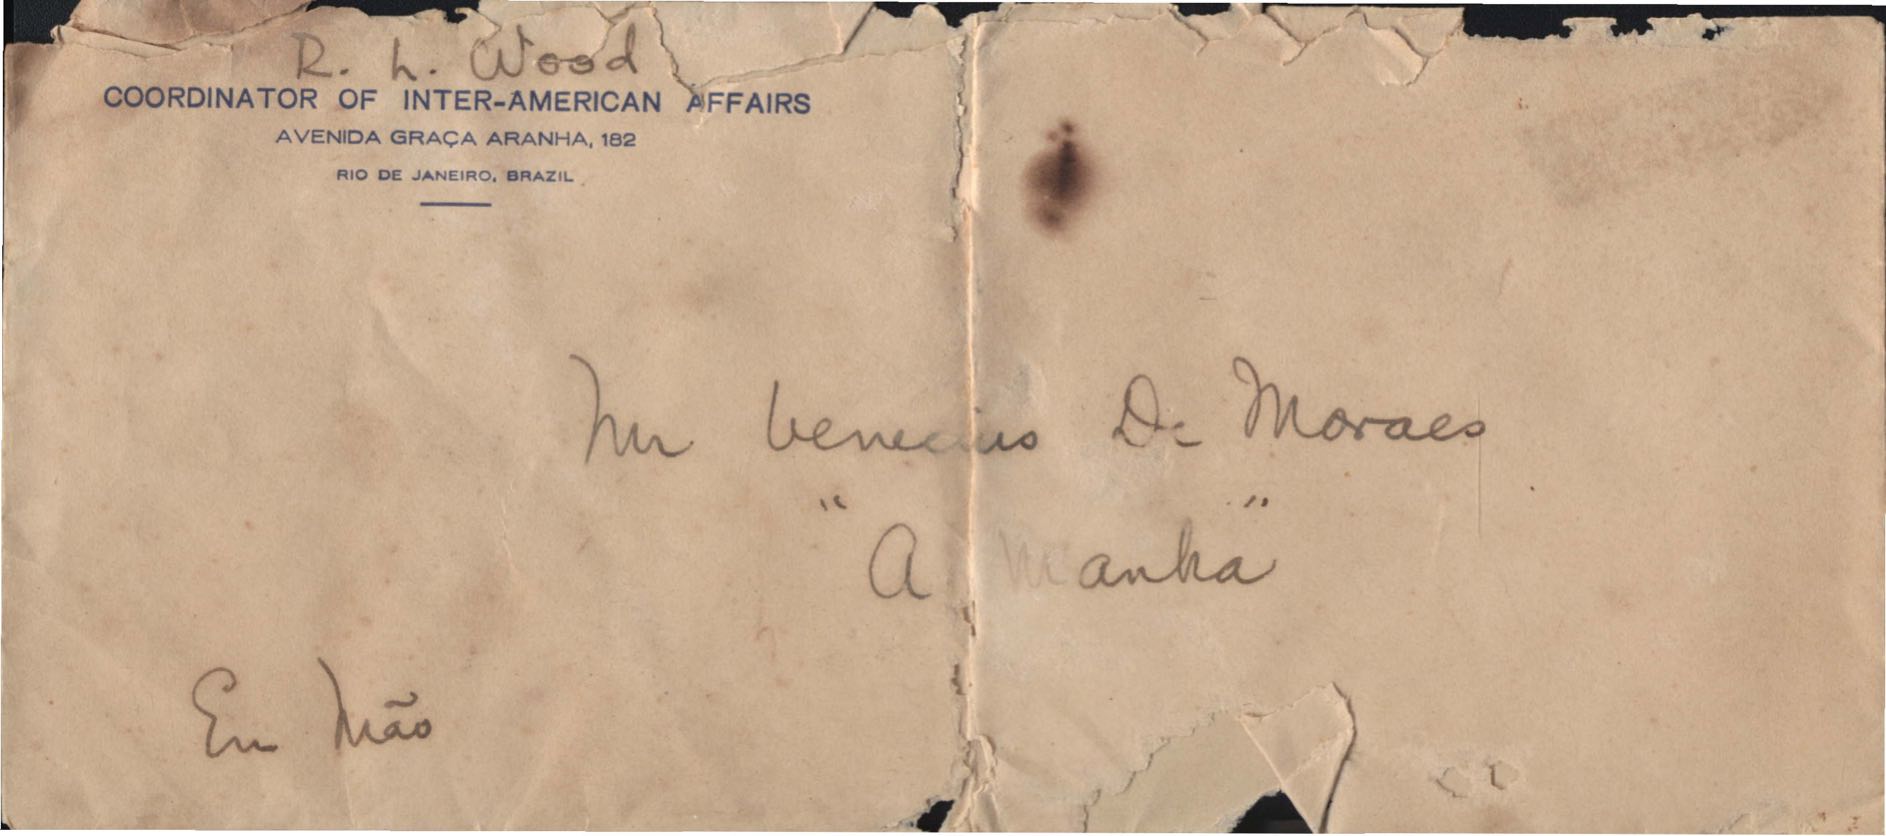 R. L. Wood
COORDINATOR OF INTER-AMERICAN AFFAIRS
AVENIDA GRAÇA ARANHA, 182
RIO DE JANEIRO, BRAZIL
Mr Venecius De Moraes
" "
A Manha
Em Mão